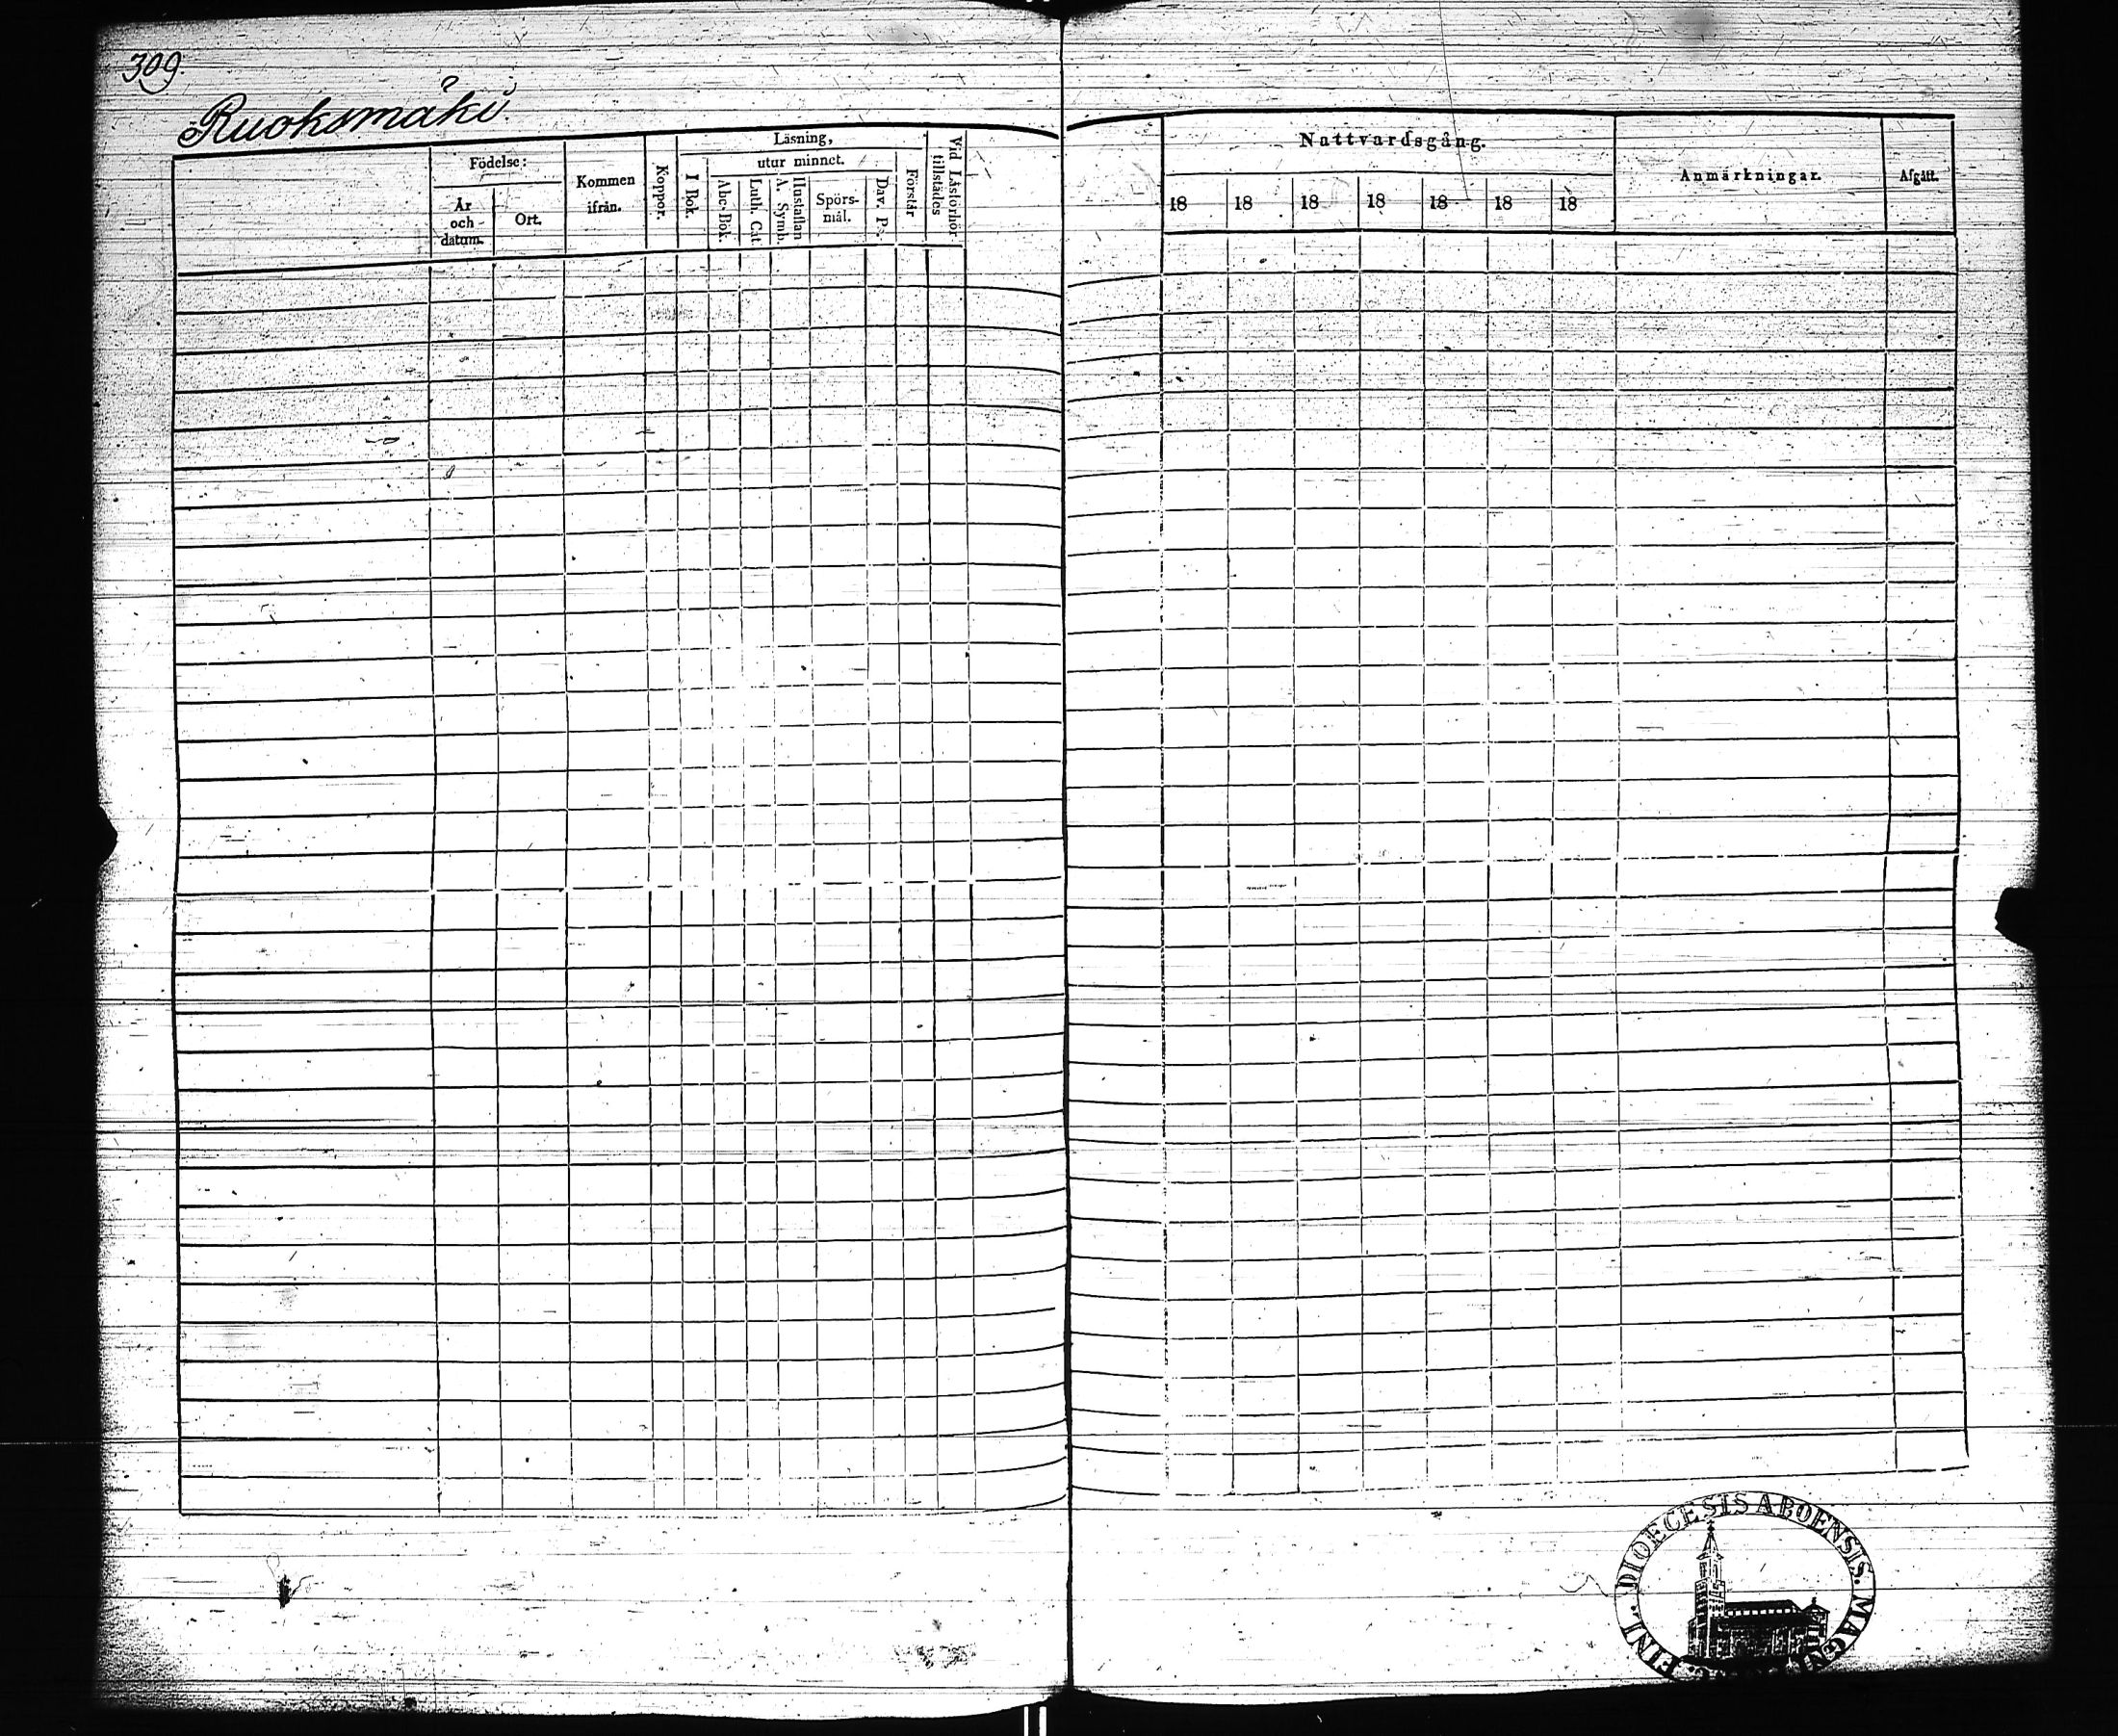 309.
Ruoksmäki.
Födelse:
År
och
datum.
Ort.
Kommen
ifrån.
Koppor.
Läsning,
utur minnet.
I Bok.
Abc-Bok.
Luth. Cat.
A. Symb.
Hustaflan
Spörs-
mål.
Dav. Ps.
Förstår
Vid Läsförhör
tillstädes
Nattvardsgång.
18 18 18 18 18 18 18
Anmärkningar.
Afgått.
DIOECESIS ABOENSIS. FINL.